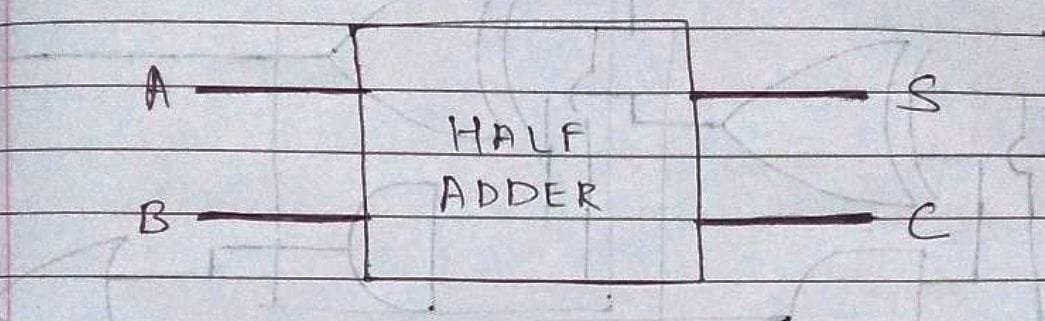 A
S
HALF
ADDER
B
C